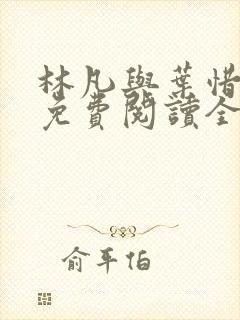 林凡與葉惜
免費閱讀全
俞平伯